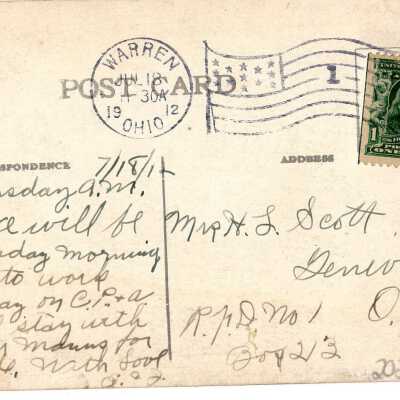 WARREN
JUN 18
11 30A
19 12
OHIO
1
POST CARD
1
RESPONDENCE
7/18/12
ADDRESS
sday A.M.
will be
day morning
to work
ay on C.P. & a
stay with
Manns for
With Love
Mrs H. L. Scott
Genev
O.
R.F.D. No 1
Box 213